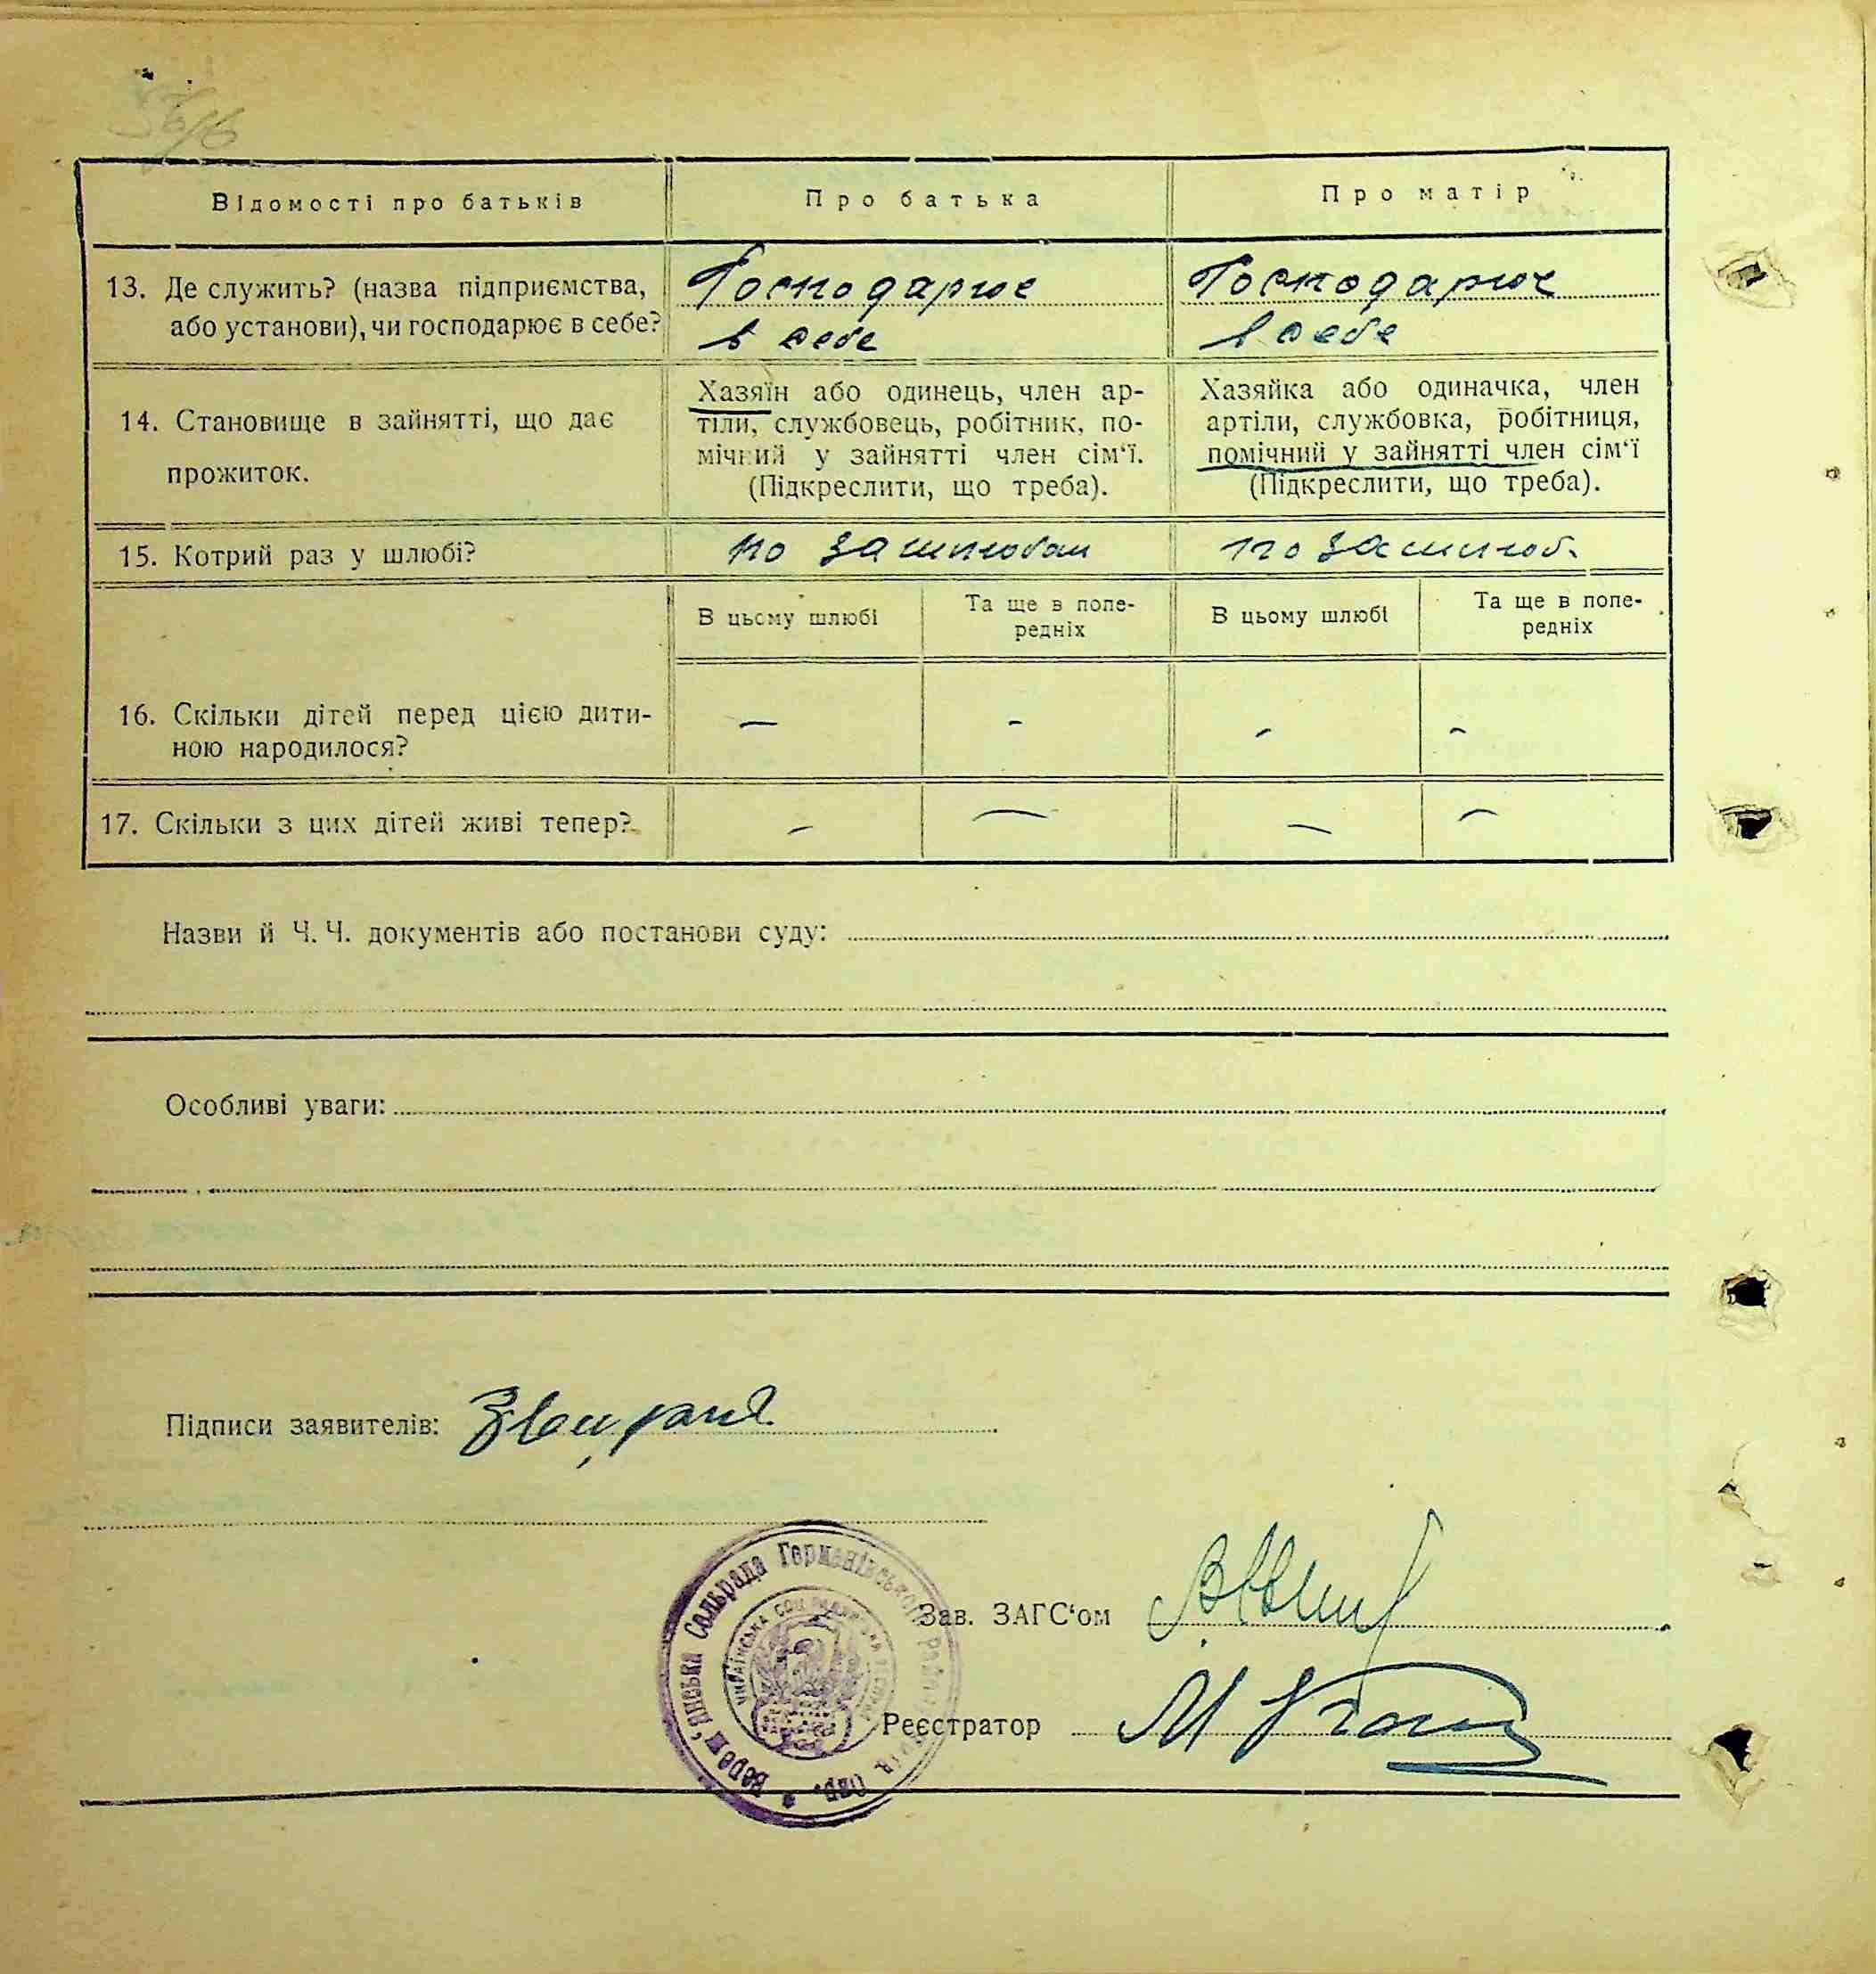 Відомості про батьків
Про батька
Про матір
13. Де служить? (назва підприємства, або установи), чи господарює в себе?
Господарює
в себе
Господарює
в себе
14. Становище в зайнятті, що дає прожиток.
Хазяїн або одинець, член ар-
тіли, службовець, робітник, по-
мічний у зайнятті член сім‘ї.
(Підкреслити, що треба).
Хазяйка або одиначка, член
артіли, службовка, робітниця,
помічний у зайнятті член сім‘ї
(Підкреслити, що треба).
15. Котрий раз у шлюбі?
по зашлюбом
по зашлюб.
В цьому шлюбі
Та ще в попе-
редніх
В цьому шлюбі
Та ще в попе-
редніх
16. Скільки дітей перед цією дити-
ною народилося?
– - - -
17. Скільки з цих дітей живі тепер?
– – – –
Назви й Ч. Ч. документів або постанови суду:
Особливі уваги:
Підписи заявителів:
Сельрада Германівського Рай
Зав. ЗАГС‘ом
Реєстратор